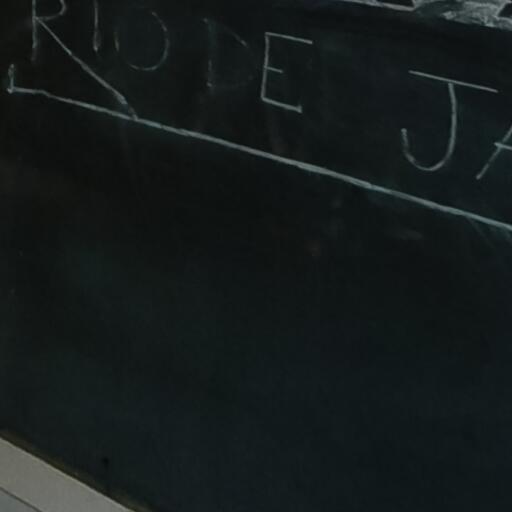 RIO DE JA